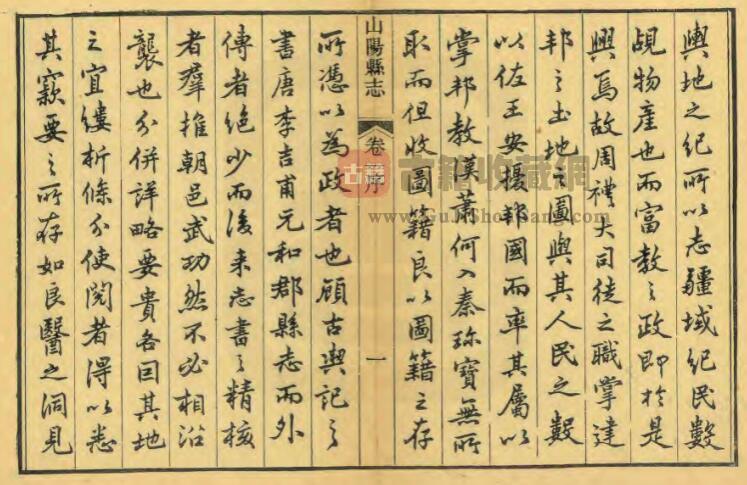 輿地之紀所以志疆域紀民數
覘物產也而富教之政即於是
興焉故周禮大司徒之職掌建
邦之土地之圖與其人民之數
以佐王安擾邦國而率其屬以
掌邦教漢蕭何入秦珍寶無所
取而但收圖籍良以圖籍之存
山陽縣志
卷 序
一
所憑以為政者也顧古輿記之
書唐李吉甫元和郡縣志而外
傳者絕少而後來志書之精核
者羣推朝邑武功然不必相沿
襲也分併詳略要貴各因其地
之宜縷析條分使閱者得以悉
其窾要之所存如良醫之洞見
古籍
古籍收藏網
www.GuJiShouCang.com